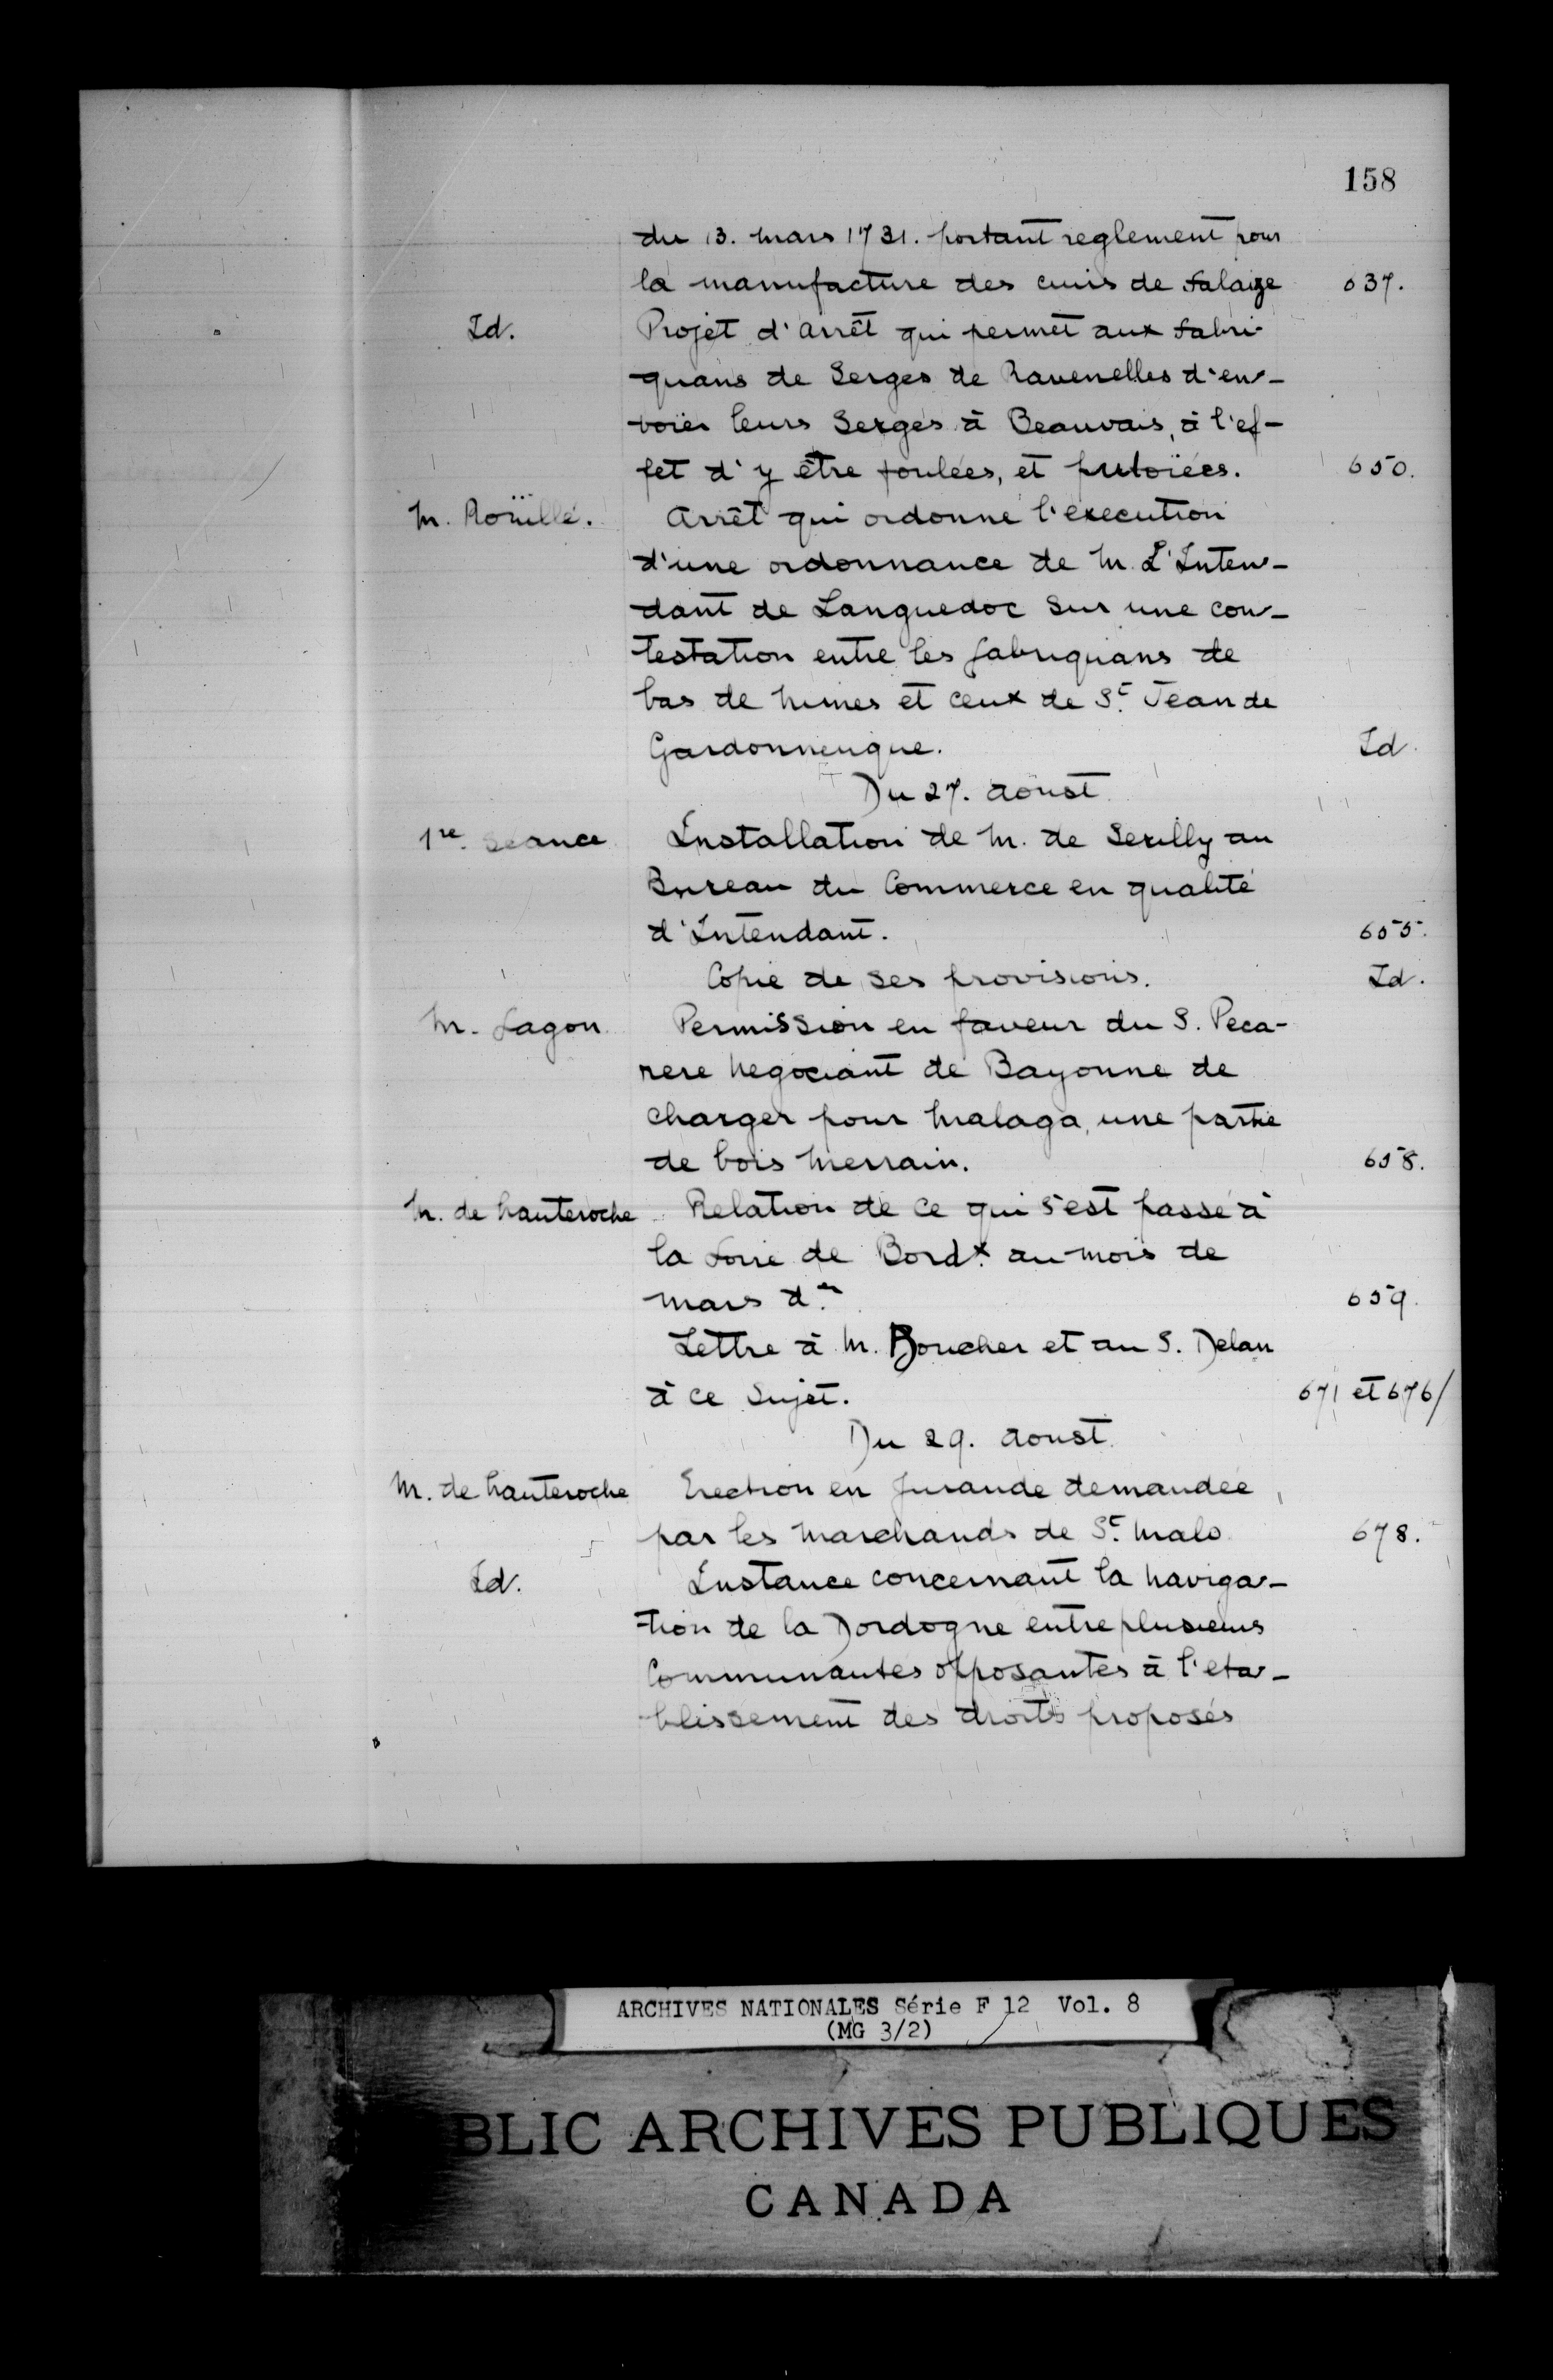 158
du 13. mars 1731. portant reglement pour
la manufacture des cuirs de falaize 637.
Id. Projet d'arrêt qui permet aux fabri-
quans de Serges de Ravenelles d'en-
voïer leurs Serges à Beauvais, à l'ef-
fet d'y être foulées, et 650.
M. Roüillé. Arrêt qui ordonne l'execution
d'une ordonnance de M. L'Inten-
dant de Languedoc sur une con-
testation entre les fabriquans de
bas de Nimes et ceux de St. Jean de
Gardonnenque. Id.
Du 27. aoust
1re. Séance Installation de M. de Serilly au
Bureau du Commerce en qualité
d'Intendant. 655.
Copie de ses provisions. Id.
M. fagon Permission en faveur du S. Peca-
rere Negociant de Bayonne de
charger pour Malaga, une partie
de bois Merrain. 658.
M. de hauteroche Relation de ce qui s'est passé à
la foire de Bordx. au mois de
mars der. 659.
Lettre à M. Boucher et au S. Delau
à ce Sujet. 671 et 676/
Du 29. aoust
M. de hauteroche Erection en Jurande demandée
par les Marchands de St. Malo 678.
Id. Instance concernant la Naviga-
tion de la Dordogne entre plusieurs
Communautes opposantes à l'eta-
blissement des droits proposés
ARCHIVES NATIONALES Série F 12 Vol. 8
(MG 3/2)
BLIC ARCHIVES PUBLIQUES
CANADA